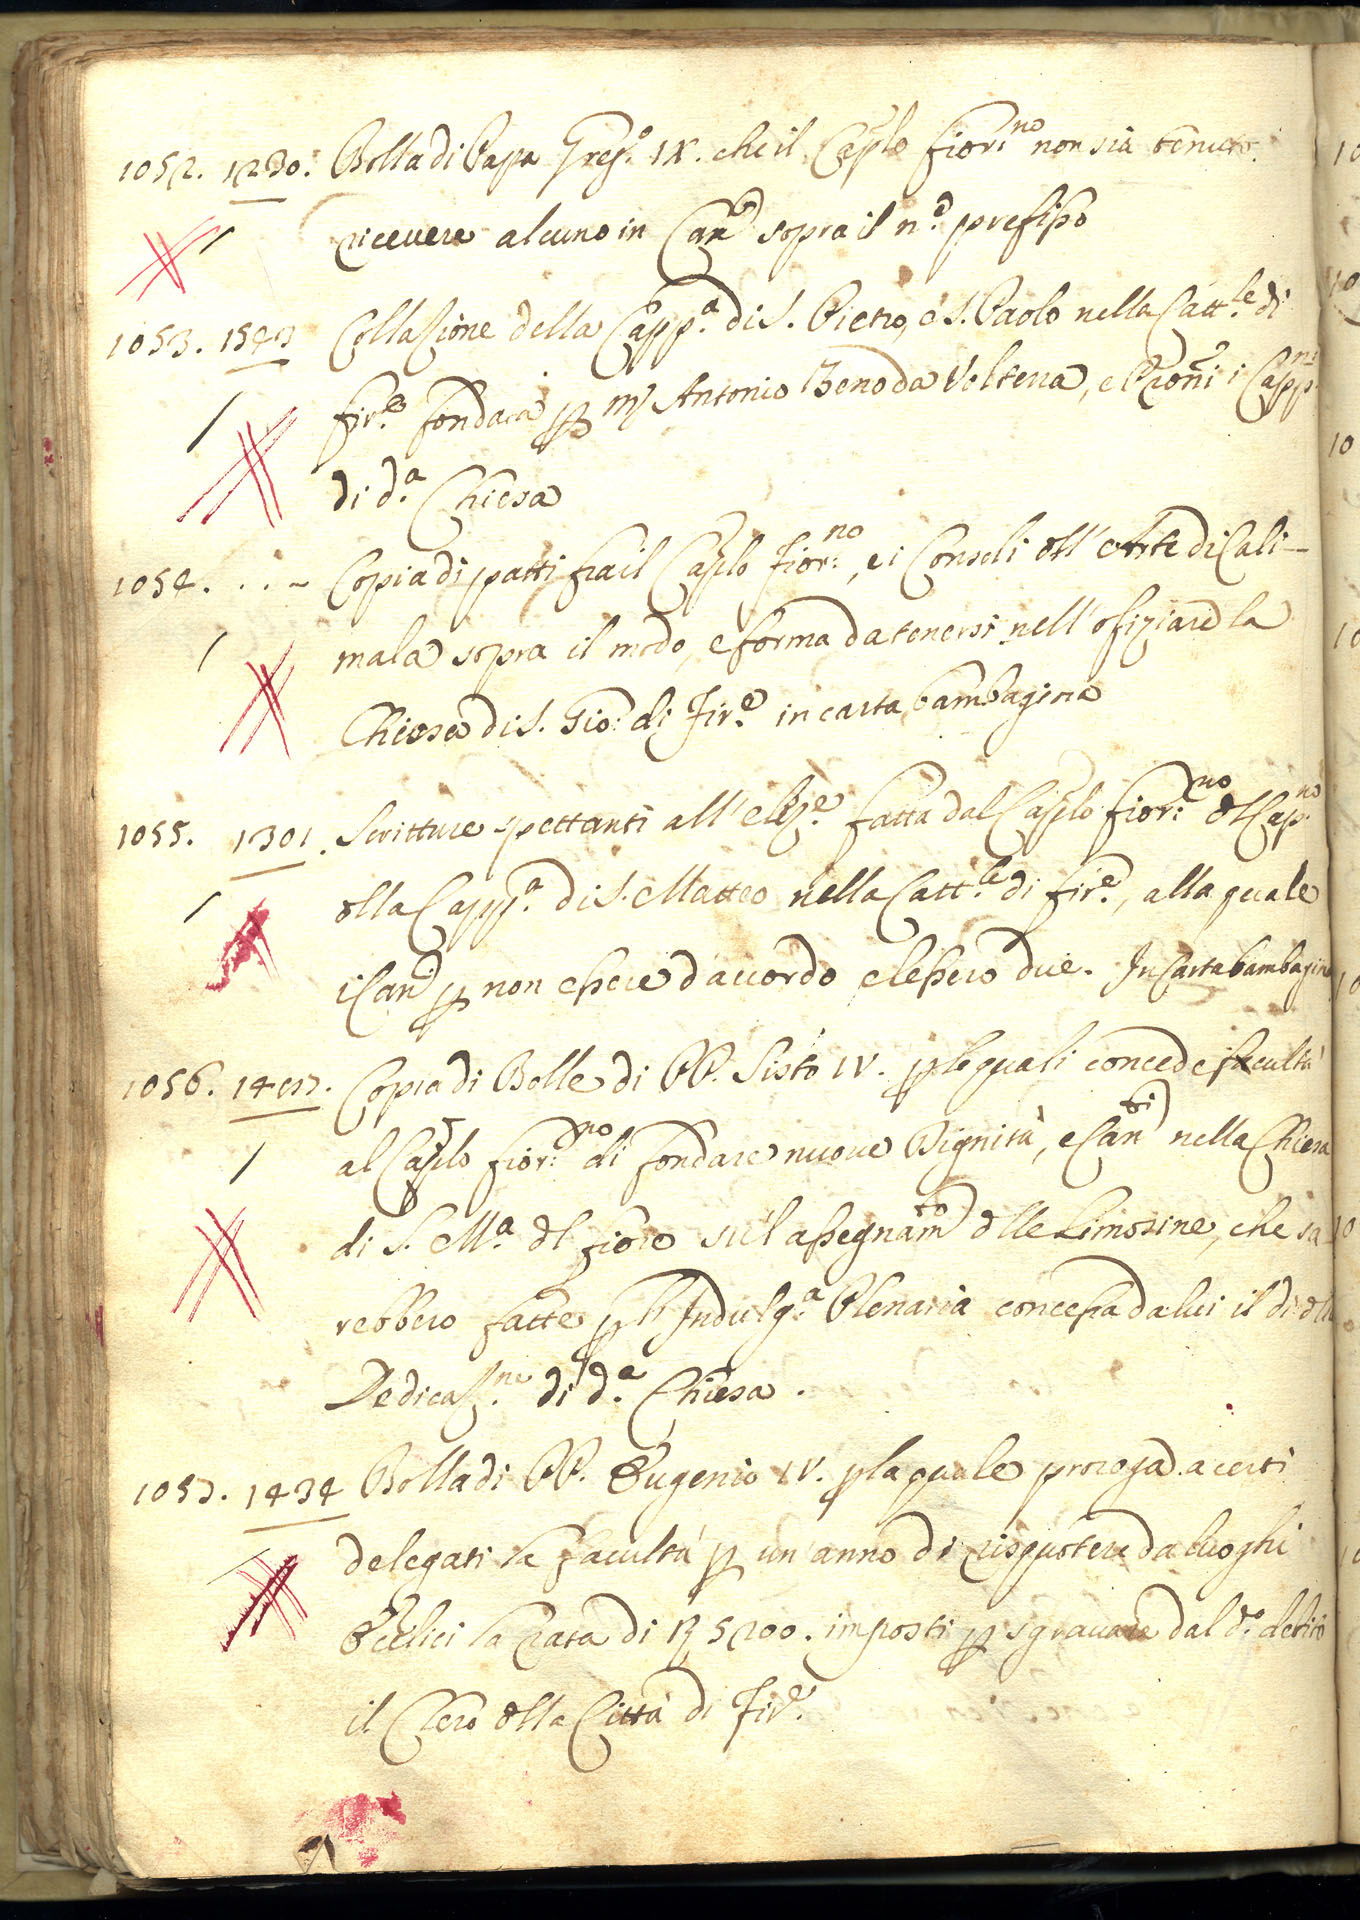 1052. 1230. Bolla di Papa Greg.º IX. che il Caplo fior.no non sia tenuto
ricevere alcuno in Can.º sopra il n.º prefisso
1053. 1543 Collazione della Capp.a di S. Pietro, e S. Paolo nella Catt.le di
fir.e fondata p mʃ Antonio Zeno da Volterra, e i Capp.ni
di d.a Chiesa
1054. . . ~ Copia di patti fra il Caplo fior.no, e i Consoli dll' Arte di Cali-
mala sopra il modo, e forma da tenersi nell' ofiziare la
Chiesa di S. Gio: di Fir.e in carta bambagina
1055. 1301. Scritture spettanti all' elez.e fatta dal Caplo fior.no dl Cap.no
dlla Capp.a di S. Matteo nella Catt.le di fir.e, alla quale
i Can.ci p non essere d'accordo elessero due. In Carta bambagina
1056. 1477. Copia di Bolle di PP. Sisto IV. p le quali concede facultà
al Caplo fior.no di fondare nuove Dignità, e Can.ti nella Chiesa
di S. M.a dl fiore su l'assegnam.to dlle Limosine, che sa
rebbero fatte p l' Indulg.a Plenaria concessa da lui il dì dlla
Dedicaz.ne di d.a Chiesa.
1057. 1434 Bolla di PP. Eugenio IV. p la quale proroga a certi
delegati la facultà p un' anno di risquotere da luoghi
Ecclici la rata di 5200. imposti p sgravare dal d.º debito
il Clero dlla Città di Fir.e